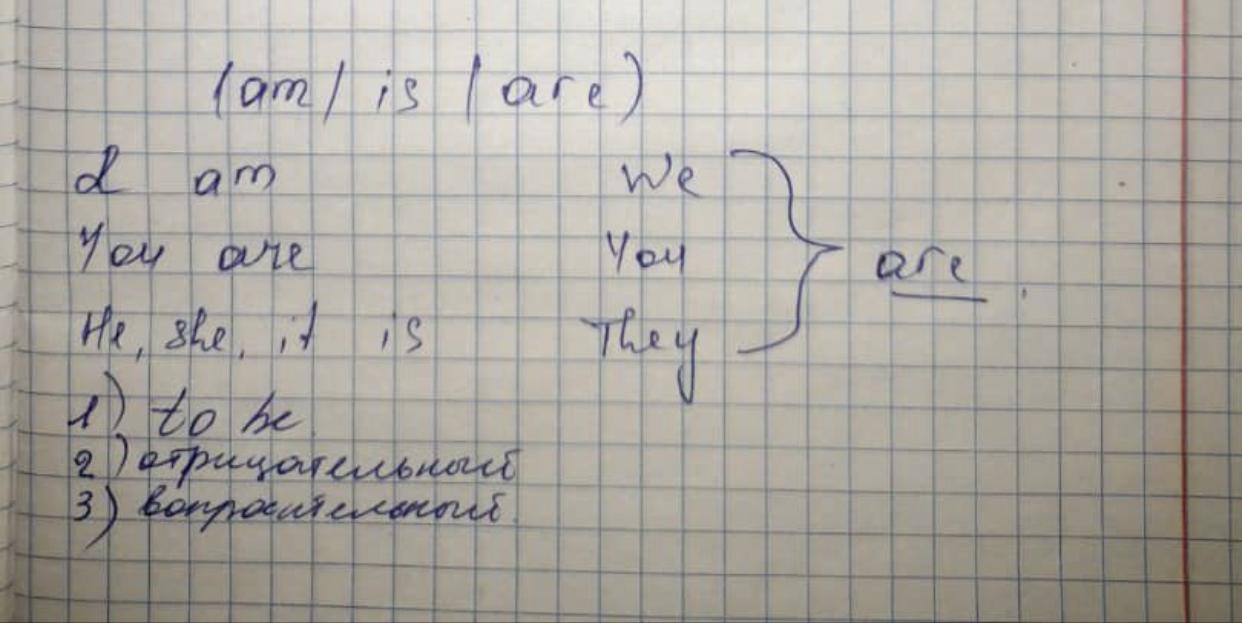 (am / is / are)
I am We
You are You are.
He, she, it is They
1) to be
2) отрицательный
3) вопросительный